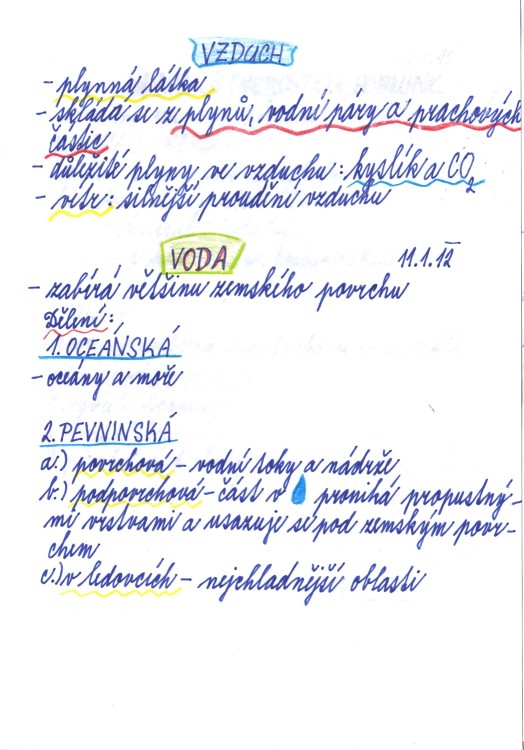 VZDUCH
- plynná látka
- skládá se z plynů, vodní páry a prachových
částic
- důležité plyny ve vzduchu: kyslík a CO₂
- vítr: silnější proudění vzduchu
VODA 11.1.12
- zabírá většinu zemského povrchu
Dělení:
1. OCEÁNSKÁ
- oceány a moře
2. PEVNINSKÁ
a.) povrchová - vodní toky a nádrže
b.) podpovrchová - část v proniká propustný-
mi vrstvami a usazuje se pod zemským povr-
chem
c.) v ledovcích - nejchladnější oblasti